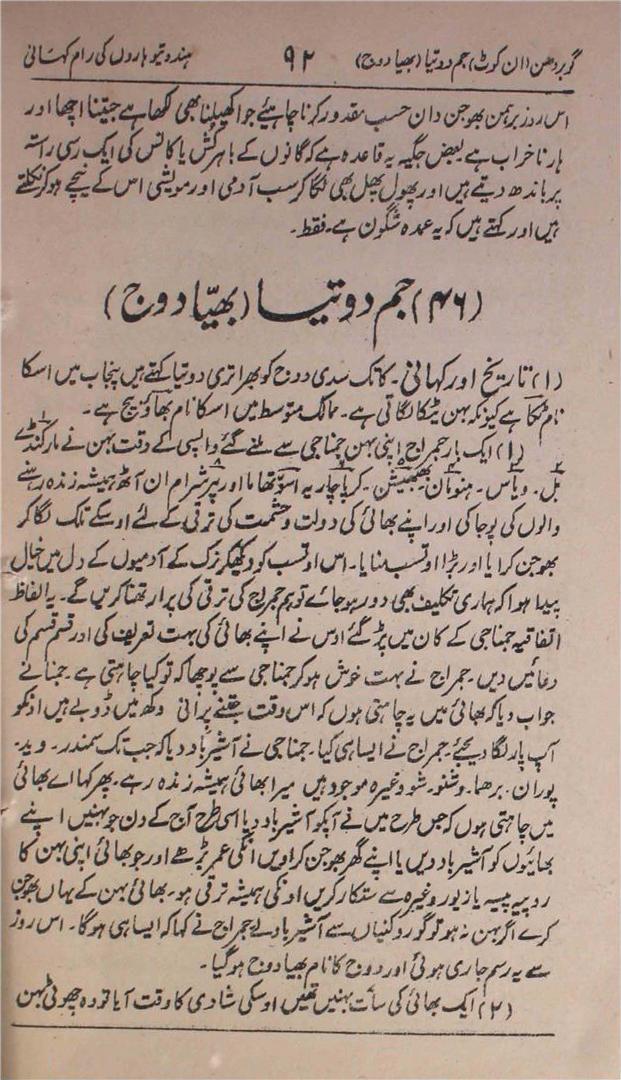 گوبردھن (ان کوٹ) جم دوتیا (بھیا دوج) ۹۲ ہندو تیوہاروں کی رام کہانی
اس روز برہمن بھوجن دان حسب مقدور کرنا چاہیئے جوا کھیلنا بھی لکھا ہے جیتنا اچھا اور
ہارنا خراب ہے بعض جگہ یہ قاعدہ ہے کہ گانوں کے باہر کُش یا کانس کی ایک رسی راستہ
پر باندھ دیتے ہیں اور پھول پھل بھی لگا کر سب آدمی اور مویشی اس کے نیچے ہو کر نکلتے
ہیں اور کہتے ہیں کہ یہ عمدہ شگون ہے۔ فقط۔
(۴۶) جم دوتیا (بھیّا دوج)
(۱) تاریخ اور کہانی۔ کاتک سدی دوج کو بھراتری دوتیا کہتے ہیں پنجاب میں اسکا
نام ٹکا ہے کیونکہ بہن ٹیکا لگاتی ہے۔ ممالک متوسط میں اسکا نام بھاؤ بیج ہے۔
(۱) ایک بار جمراج اپنی بہن جمناجی سے ملنے گئے واپسی کے وقت بہن نے مارکنڈے
بل۔ ویاس۔ ہنومان۔ بھبھیشن۔ کرپاچاریہ اسوتھاما اور پرشرام ان آٹھ ہمیشہ زندہ رہنے
والوں کی پوجا کی اور اپنے بھائی کی دولت و حشمت کی ترقی کے لئے اوسکے تلک لگا کر
بھوجن کرایا اور بڑا اوتسب منایا۔ اس اوتسب کو دیکھکر نرک کے آدمیوں کے دل میں خیال
پیدا ہوا کہ ہماری تکلیف بھی دور ہو جائے تو ہم جمراج کی ترقی کی پرارتھنا کریں گے۔ یہ الفاظ
اتفاقیہ جمناجی کے کان میں پڑ گئے اوس نے اپنے بھائی کی بہت تعریف کی اور قسم قسم کی
دعائیں دیں۔ جمراج نے بہت خوش ہو کر جمناجی سے پوچھا کہ تو کیا چاہتی ہے۔ جمنا نے
جواب دیا کہ بھائی میں یہ چاہتی ہوں کہ اس وقت جتنے پرانی دکھ میں ڈوبے ہیں اونکو
آپ پار لگا دیجئے۔ جمراج نے ایسا ہی کیا۔ جمناجی نے آشیرباد دیا کہ جب تک سمندر۔ وید۔
پوران۔ برھما۔ وشنو۔ شو وغیرہ موجود ہیں میرا بھائی ہمیشہ زندہ رہے۔ پھر کہا اے بھائی
میں چاہتی ہوں کہ جس طرح میں نے آپکو آشیرباد دیا اسی طرح آج کے دن جو بہنیں اپنے
بھائیوں کو آشیرباد دیں یا اپنے گھر بھوجن کراویں انکی عمر بڑھے اور جو بھائی اپنی بہن کا
روپیہ پیسہ یا زیور وغیرہ سے ستکار کریں اونکی ہمیشہ ترقی ہو۔ بھائی بہن کے ہاں بھوجن
کرے اگر بہن نہ ہو تو گورو کنیاں سے آشیرباد لے جمراج نے کہا کہ ایسا ہی ہوگا۔ اس روز
سے یہ رسم جاری ہوئی اور دوج کا نام بھیا دوج ہو گیا۔
(۲) ایک بھائی کی سات بہنیں تھیں اوسکی شادی کا وقت آیا تو وہ چھوٹی بہن